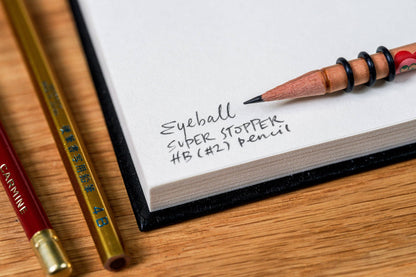 Eyeball
SUPER STOPPER
HB (#2) pencil
CARMINE
4B